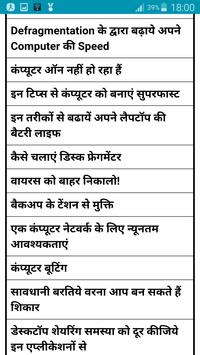 39% 18:00
Defragmentation के द्वारा बढ़ाये अपने
Computer की Speed
कंप्यूटर ऑन नहीं हो रहा हैं
इन टिप्स से कंप्यूटर को बनाएं सुपरफास्ट
इन तरीकों से बढायें अपने लैपटॉप की
बैटरी लाइफ
कैसे चलाएं डिस्क फ्रेगमेंटर
वायरस को बाहर निकालो!
बैकअप के टेंशन से मुक्ति
एक कंप्यूटर नेटवर्क के लिए न्यूनतम
आवश्यकताएं
कंप्यूटर बूटिंग
सावधानी बरतिये वरना आप बन सकते हैं
शिकार
डेस्कटॉप शेयरिंग समस्या को दूर कीजिये
इन एप्लीकेशनों से